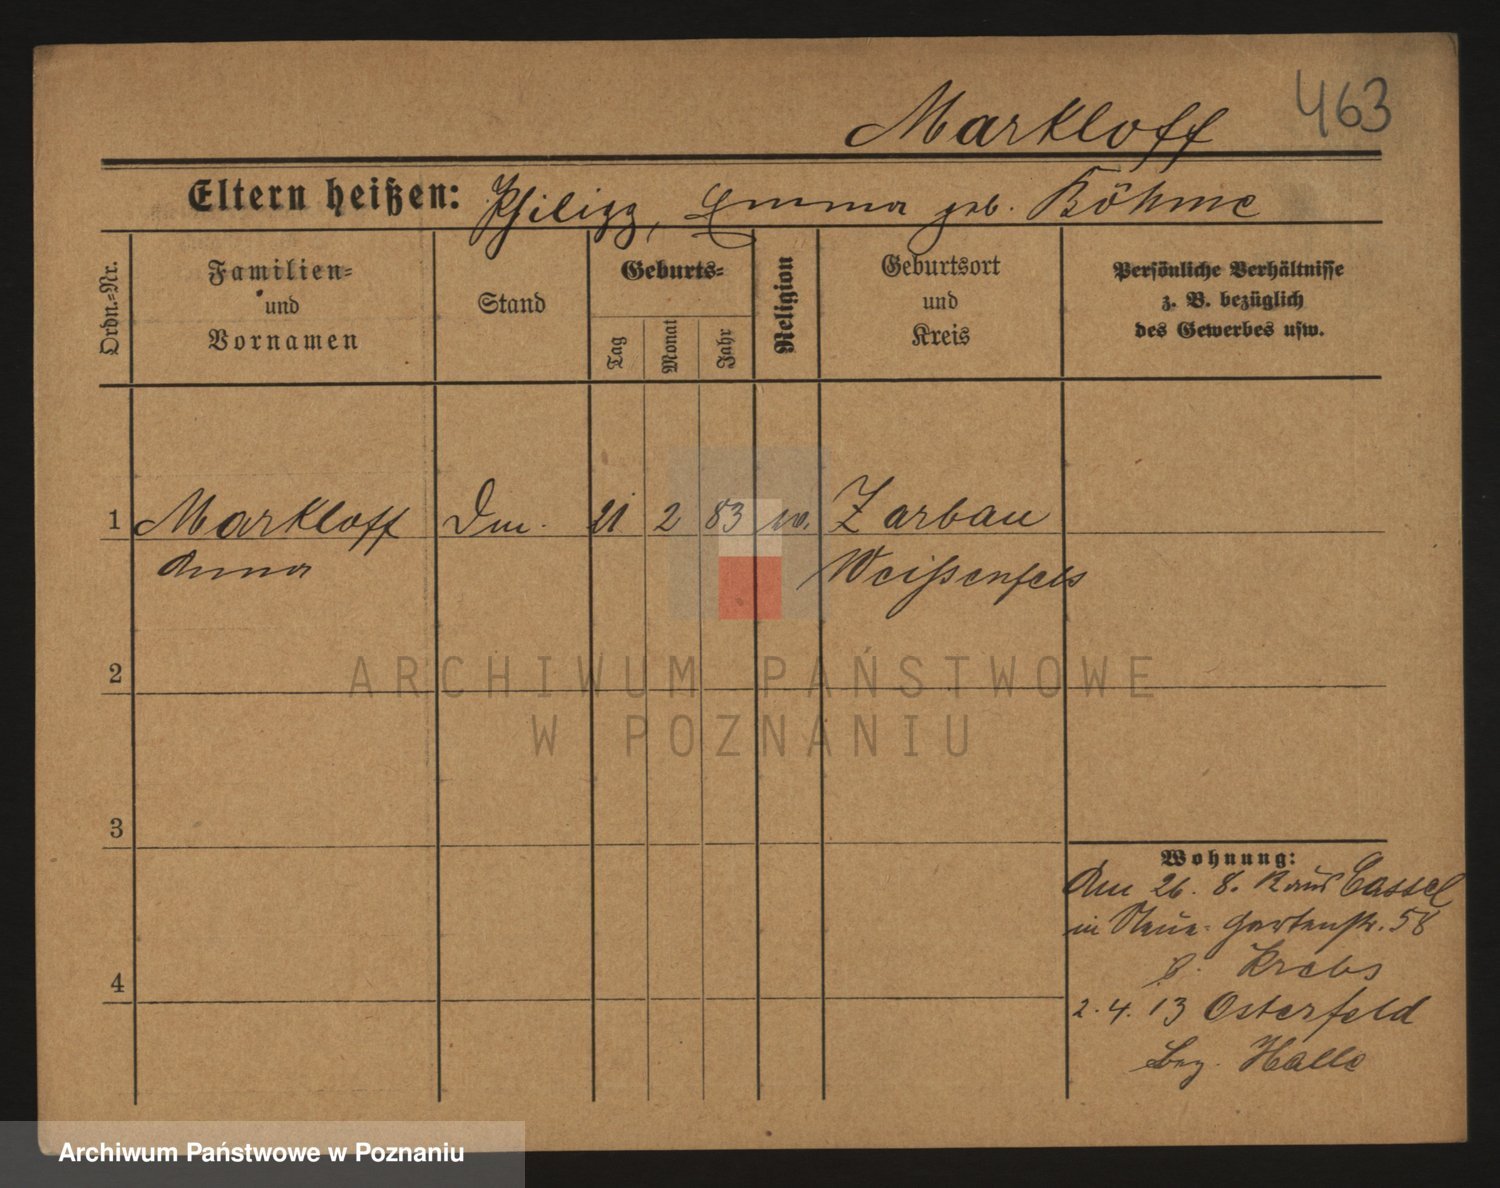 463
Markloff
Eltern heißen: Philipp, Emma geb. Böhme
Ordn.-Nr.
Familien-
und
Vornamen
Stand
Geburts-
Tag
Monat
Jahr
Religion
Geburtsort
und
Kreis
Persönliche Verhältnisse
z. B. bezüglich
des Gewerbes usw.
1 Markloff 21 2 83 Zarbau
Anna Weißenfels
2
ARCHIWUM PAŃSTWOWE
W POZNANIU
3
Wohnung:
26. 8. aus Cassel
in Gartenstr. 58
b. Krebs
4
2. 4. 13 Osterfeld
Bez. Halle
Archiwum Państwowe w Poznaniu